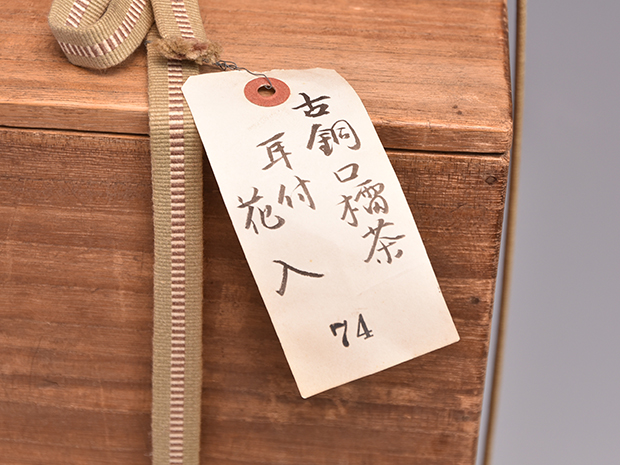 古銅口櫺茶
耳付
花入
74